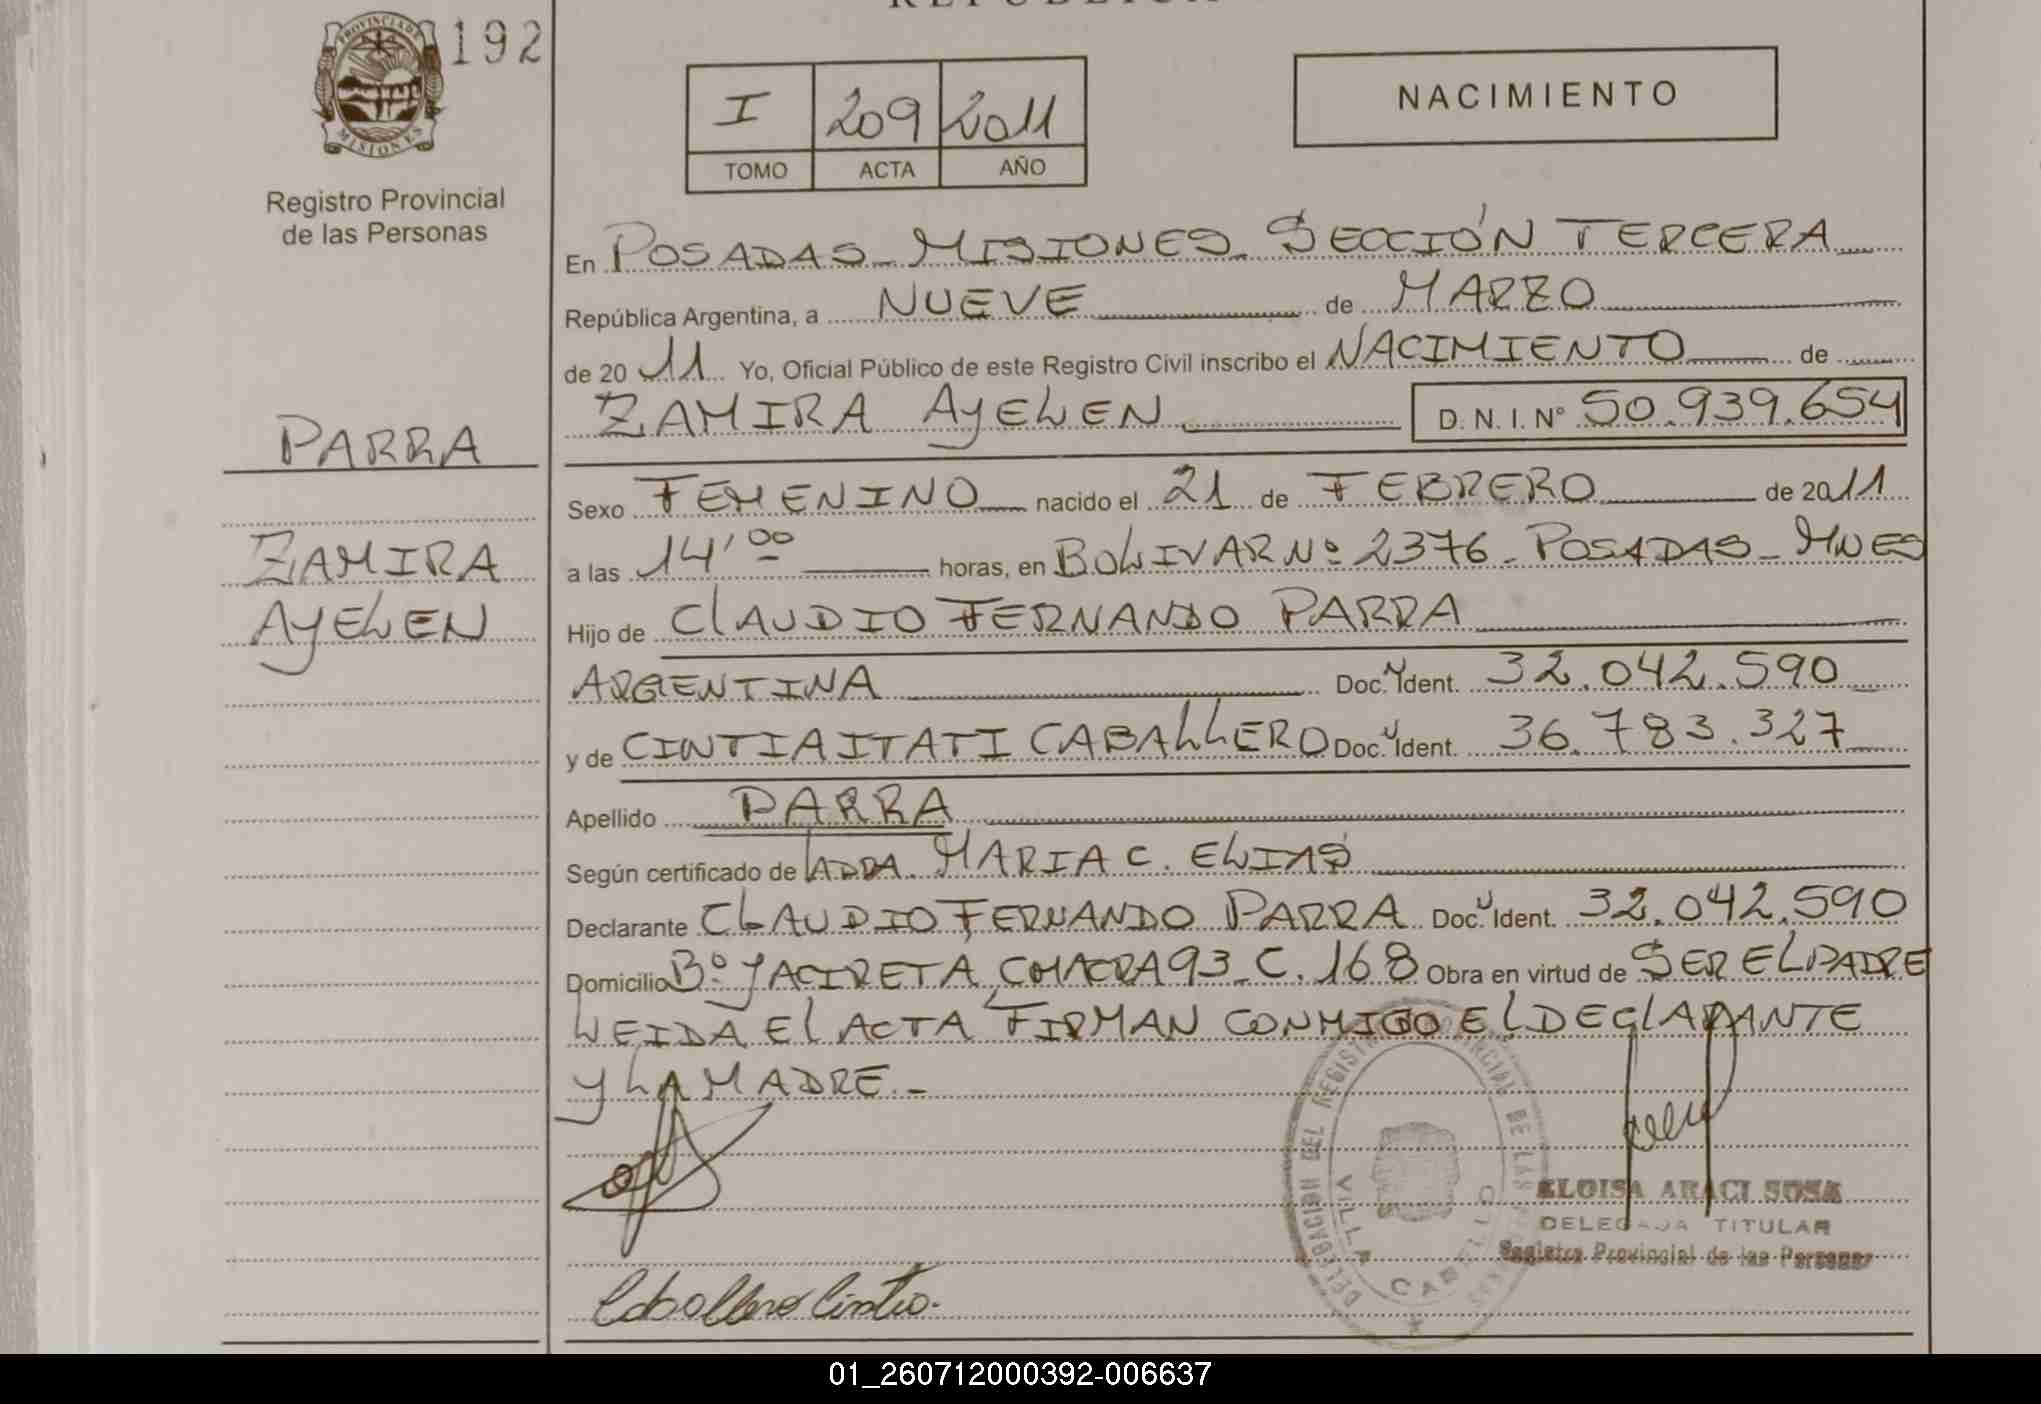 PROVINCIA DE
MISIONES
192
Registro Provincial
de las Personas
I 209 2011
TOMO ACTA AÑO
NACIMIENTO
En POSADAS - MISIONES. SECCIÓN TERCERA
República Argentina, a NUEVE de MARZO
de 2011 Yo, Oficial Público de este Registro Civil inscribo el NACIMIENTO de
ZAMIRA AYELEN D. N. I. Nº 50.939.654
PARRA
ZAMIRA
AYELEN
Sexo FEMENINO nacido el 21 de FEBRERO de 2011
a las 14'00 horas, en BOLIVAR Nº 2376 - POSADAS - MNES
Hijo de CLAUDIO FERNANDO PARRA
ARGENTINA Doc. Ident. 32.042.590
y de CINTIA ITATI CABALLERO Doc. Ident. 36.783.327
Apellido PARRA
Según certificado de LA DRA. MARIA C. ELIAS
Declarante CLAUDIO FERNANDO PARRA Doc. Ident. 32.042.590
Domicilio Bº YACIRETA CHACRA 93 - C. 168 Obra en virtud de SER EL PADRE
LEIDA EL ACTA FIRMAN CONMIGO EL DECLARANTE
Y LA MADRE.-
DELEGACION DEL REGISTRO PROVINCIAL DE LAS PERSONAS
VILLA CABELLO
ELOISA ARACI SOSA
DELEGADA TITULAR
Registro Provincial de las Personas
Caballero Cintia.
01_260712000392-006637